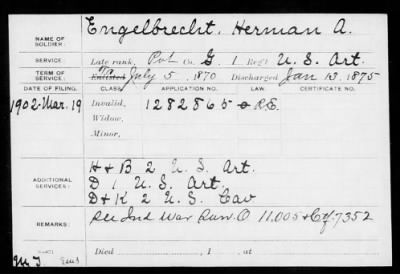 NAME OF SOLDIER: Engelbrecht, Herman A.
SERVICE: Late rank, Pvt Co. G, 1 Reg't U. S. Art.
TERM OF SERVICE: Enlisted July 5, 1870 Discharged Jan 13, 1875
DATE OF FILING. CLASS. APPLICATION NO. LAW. CERTIFICATE NO.
1902-Mar. 19 Invalid, 1282865 R.S.
Widow,
Minor,
ADDITIONAL SERVICES:
H & B 2 U. S. Art.
D 1 U. S. Art.
D & K 2 U. S. Cav
REMARKS: See Ind War Surv. O 11.005 & Ctf. 7352
Died , 1 , at